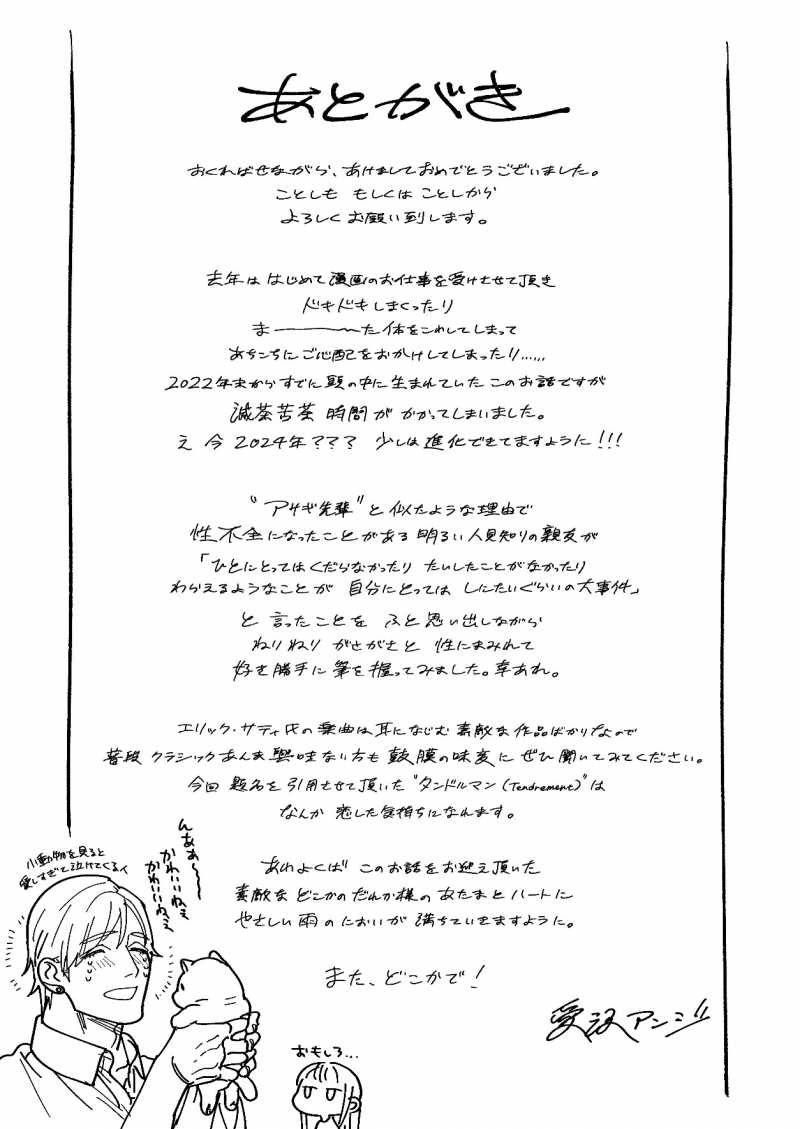 あとがき
おくればせながら、あけましておめでとうございました。
ことしも もしくは ことしから
よろしく お願い致します。
去年は はじめて 漫画のお仕事を受けさせて頂き
ドキドキしまくったり
ま――――〜た 体をこわしてしまって
あちこちに ご心配をおかけしてしまったり……
2022年末からすでに頭の中に生まれていた このお話ですが
滅茶苦茶 時間が かかってしまいました。
え 今 2024年??? 少しは進化できてますように!!!
"アサギ先輩"と 似たような理由で
性不全になったことがある 明るい人見知りの親友が
「ひとにとってはくだらなかったり たいしたことがなかったり
わらえるようなことが 自分にとっては しにたいぐらいの大事件」
と 言ったことを ふと思い出しながら
ねりねり がさがさと 性にまみれて
好き勝手に 筆を握ってみました。幸あれ。
エリック・サティ氏の 楽曲は 耳になじむ 素敵な作品ばかりなので
普段 クラシックあんま興味ない方も 鼓膜の味変に ぜひ聞いてみてください。
今回 題名を 引用させて頂いた "タンドルマン(Tendrement)"は
なんか 恋した気持ちになれます。
あわよくば このお話をお迎え頂いた
素敵な どこかのだれか様の あたまとハートに
やさしい雨のにおいが 満ちていきますように。
また、どこかで!
愛沢アンジ
小動物を見ると
愛しすぎて泣けてくるイ
んあぁ〜〜
かわいいねぇ
かわいいねぇ
おもしろ…